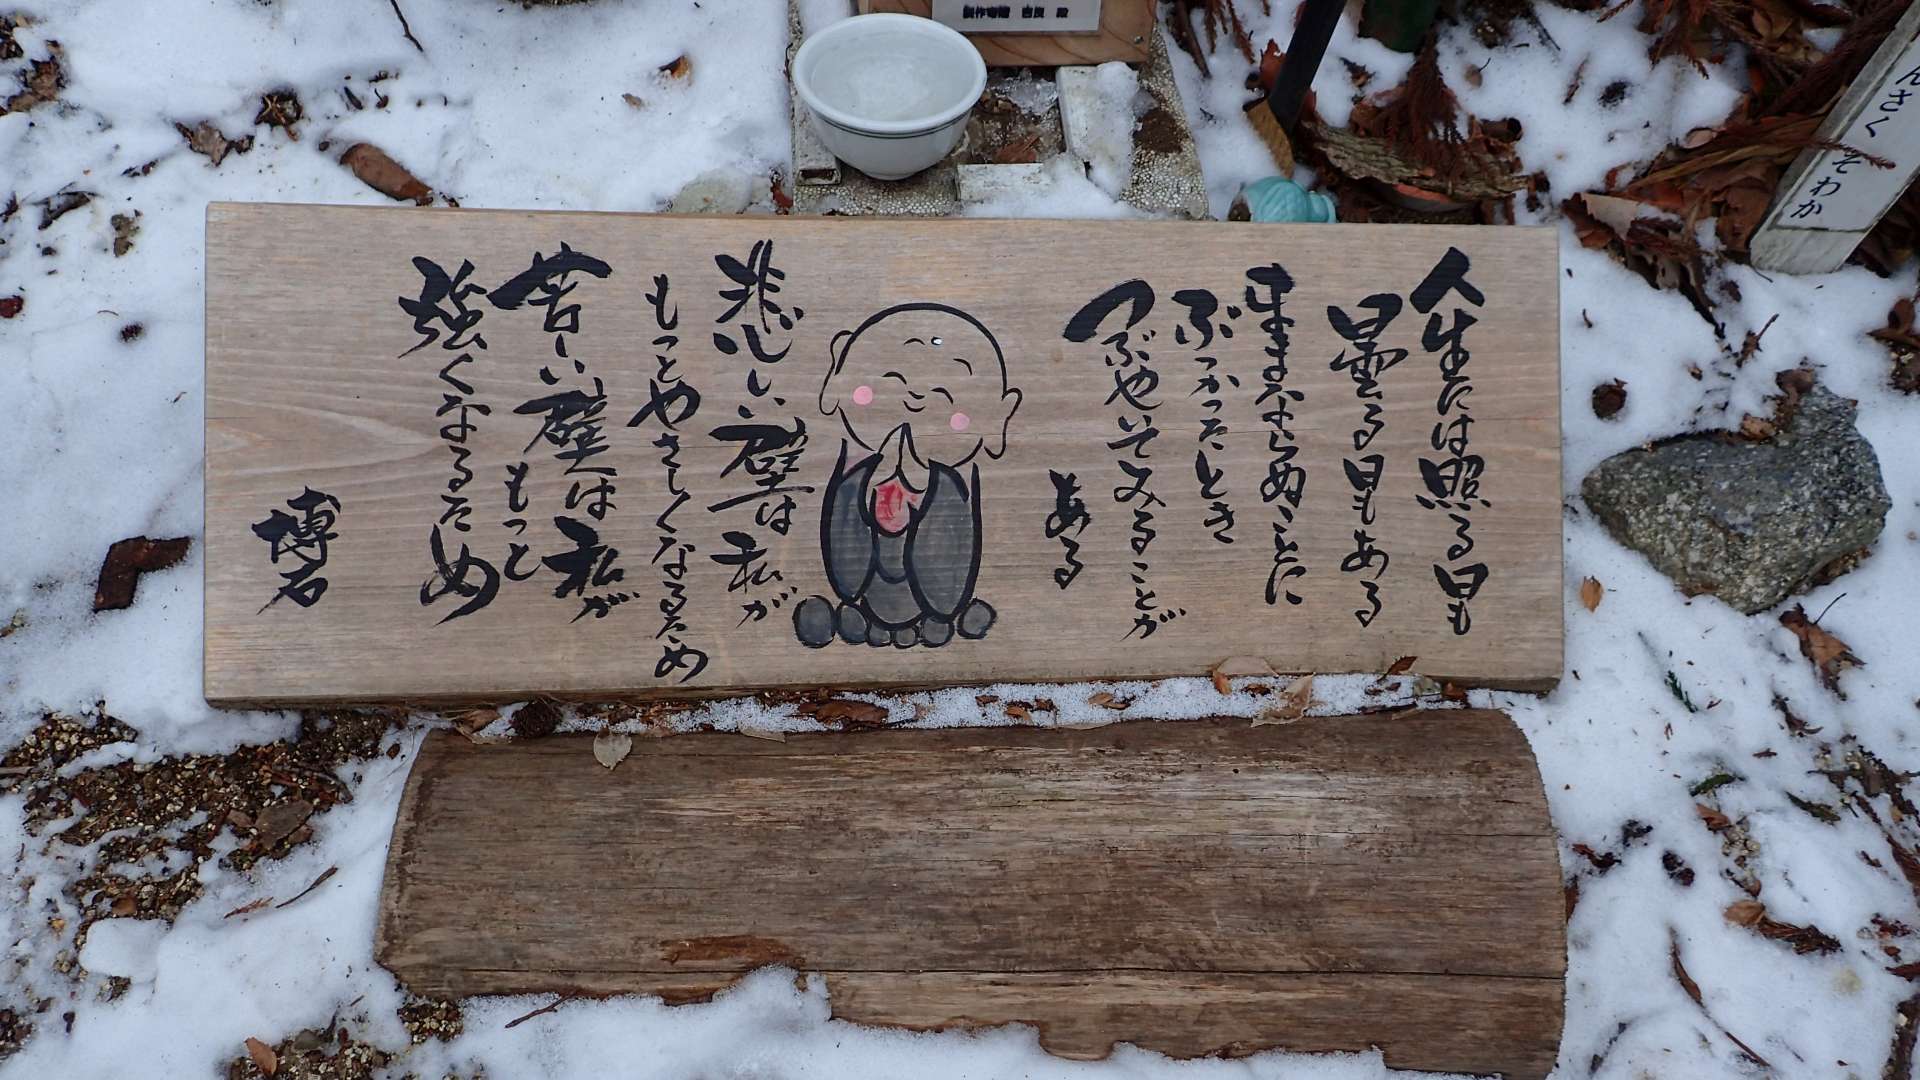 人生には照る日も
曇る日もある
まゝならぬことに
ぶつかったとき
つぶやいてみることが
ある
悲しい壁は私が
もっとやさしくなるため
苦しい壁は私が
もっと
強くなるため
博石
んさく そわか